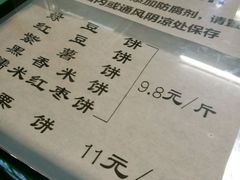 添加防腐剂,请
内或通风阴凉处保存
绿豆饼
红豆饼
紫薯饼
黑香米饼
糯米红枣饼
9.8元/斤
栗饼
11元/